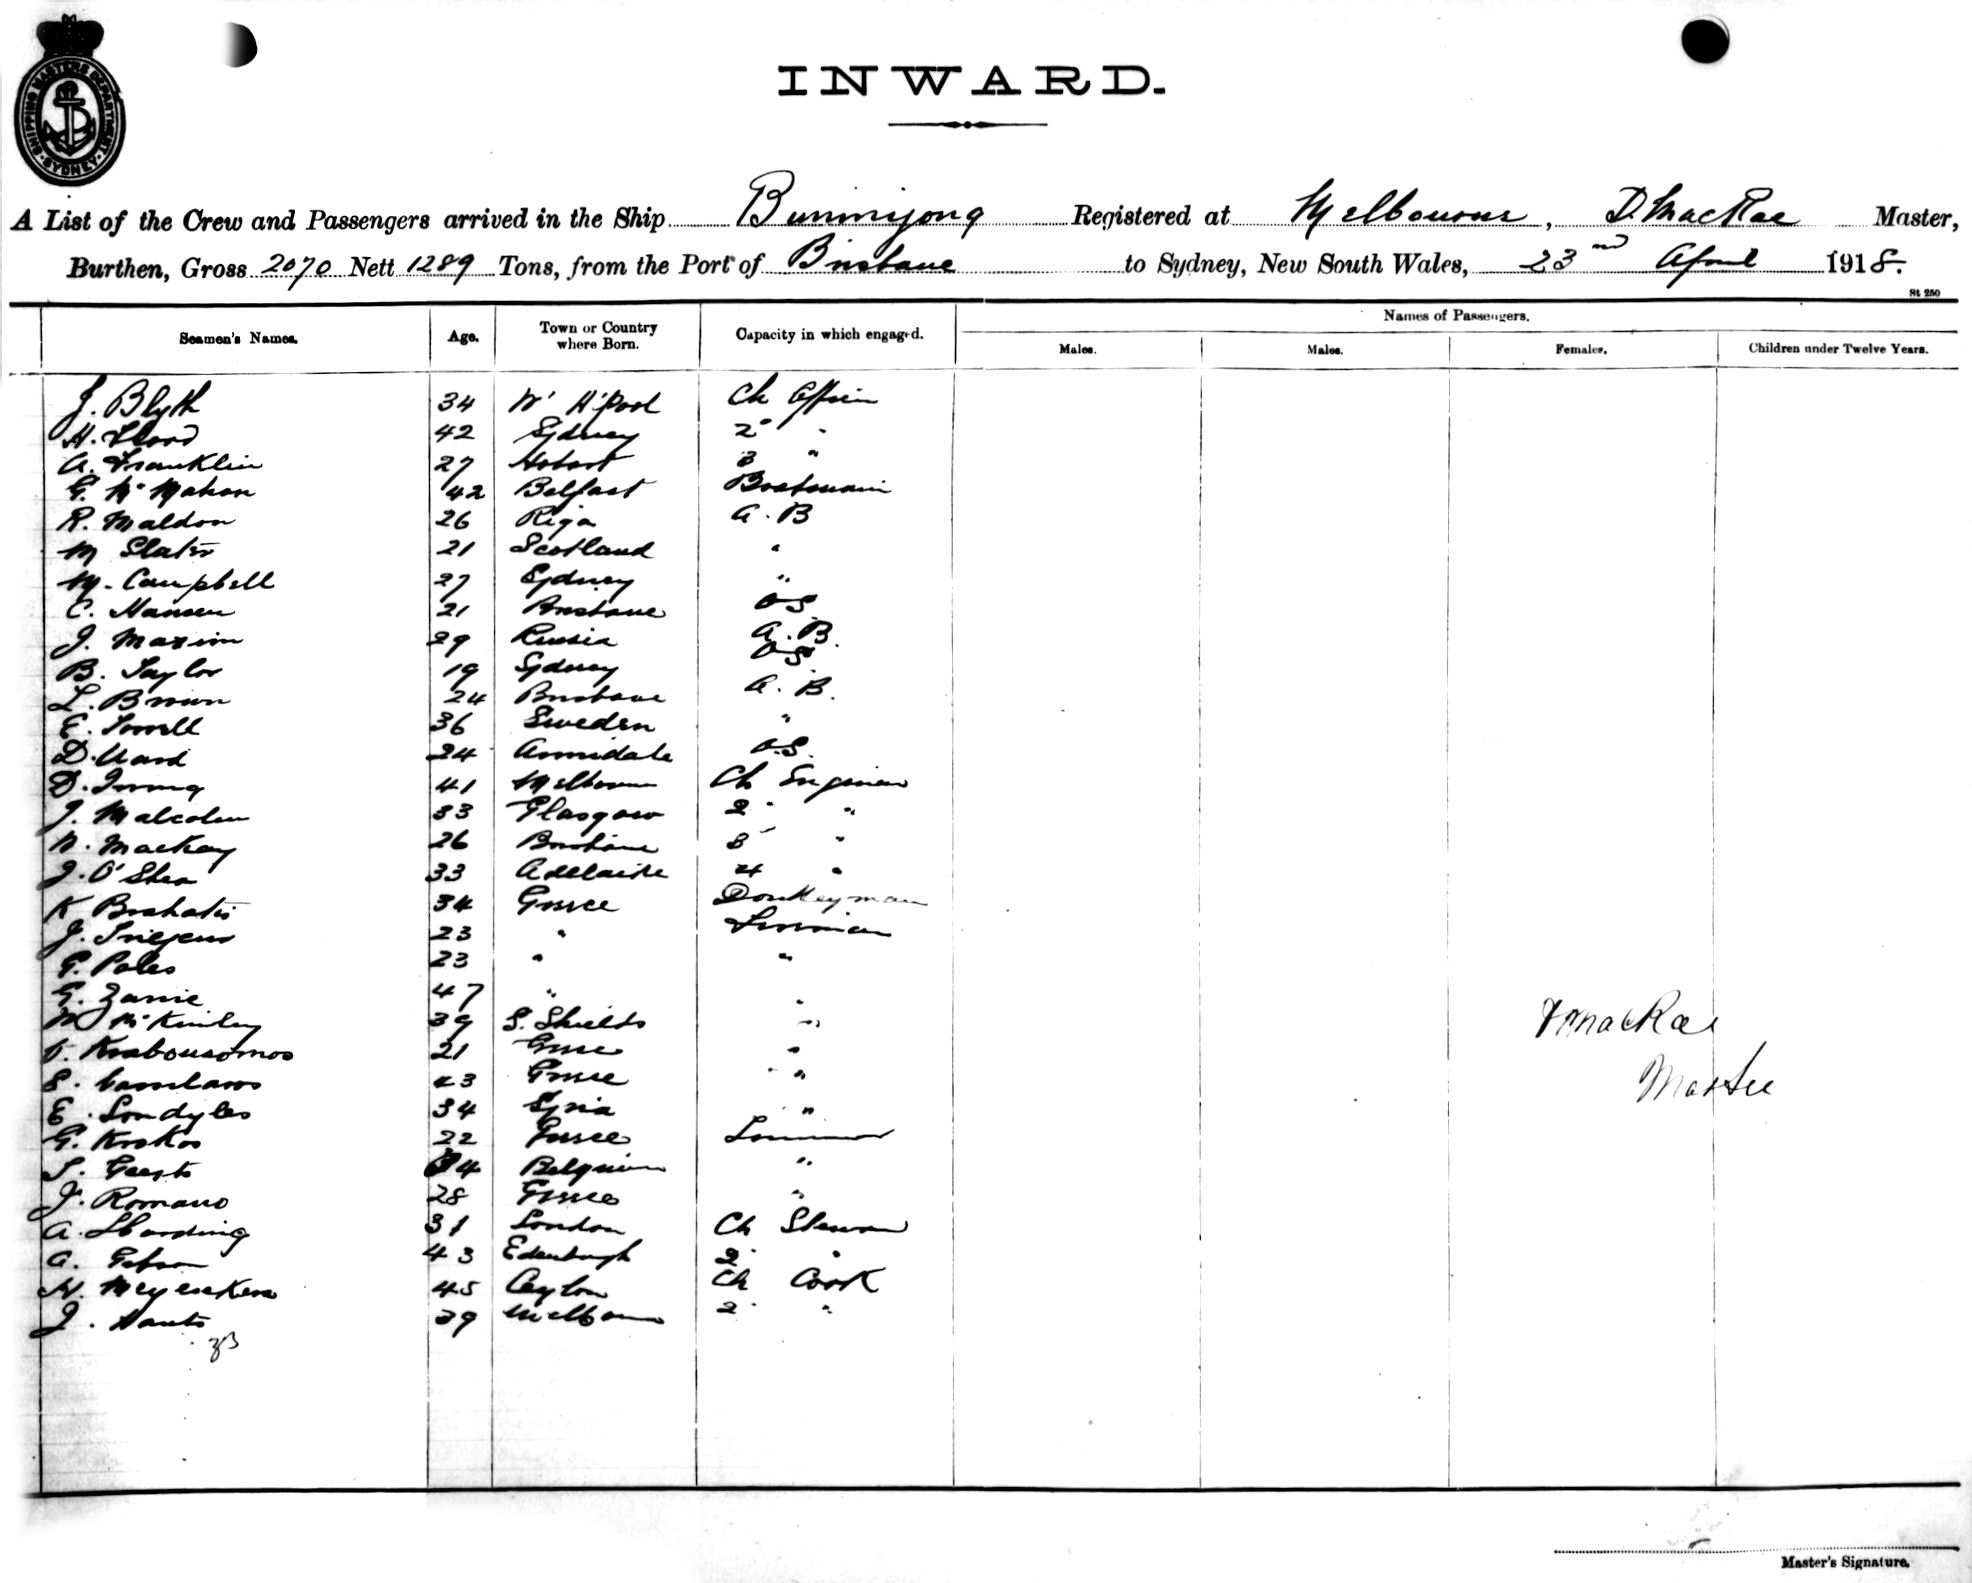 SHIPPING MASTERS DEPARTMENT
SYDNEY
INWARD.
A List of the Crew and Passengers arrived in the Ship Buninyong Registered at Melbourne, D. MacRae Master,
Burthen, Gross 2070 Nett 1289 Tons, from the Port of Brisbane to Sydney, New South Wales, 23nd April 1918.
St 250
Seamen's Names. Age. Town or Country where Born. Capacity in which engaged. Names of Passengers.
Males. Males. Females. Children under Twelve Years.
J. Blyth 34 W' H'Pool Ch Officer
H. Flood 42 Sydney 2 "
A. Franklin 27 Hobart 3 "
G. McMahon 42 Belfast Boatswain
R. Maldon 26 Riga A. B
M Slater 21 Scotland "
M. Campbell 27 Sydney "
C. Hansen 21 Brisbane OS
J. Maxim 29 Russia A. B.
B. Taylor 19 Sydney OS
L. Brown 24 Brisbane A. B.
E. 36 Sweden "
D. Ward 24 Armidale O.S.
D. Irving 41 Melbourne Ch Engineer
J. Malcolm 33 Glasgow 2 "
N. Mackay 26 Brisbane 3 "
J. O'Shea 33 Adelaide 4 "
K 34 Greece Donkeyman
J. 23 " Fireman
G. Poles 23 " "
G. Zanie 47 " "
W McKinley 39 S. Shields "
Krabousomos 21 Greece "
S. 23 Greece "
E. Londyles 34 Syria "
G. Kokkos 22 Greece
S. 34 Belgium "
J. Romano 28 Greece "
A. Harding 31 London Ch Steward
A. Gibson 43 Edenburgh 2 "
N. 45 Ceylon Ch Cook
J. Hants 39 Melbourne 2 "
33
D MacRae
Master
Master's Signature.